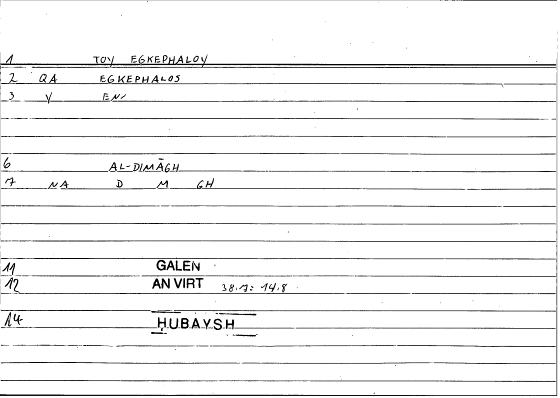 1 TOY EGKEPHALOY
2 QA EGKEPHALOS
3 Y EN/
6 AL-DIMĀGH
7 NA D M GH
11 GALEN
12 AN VIRT 38.7: 14.8
14 ḤUBAYSH